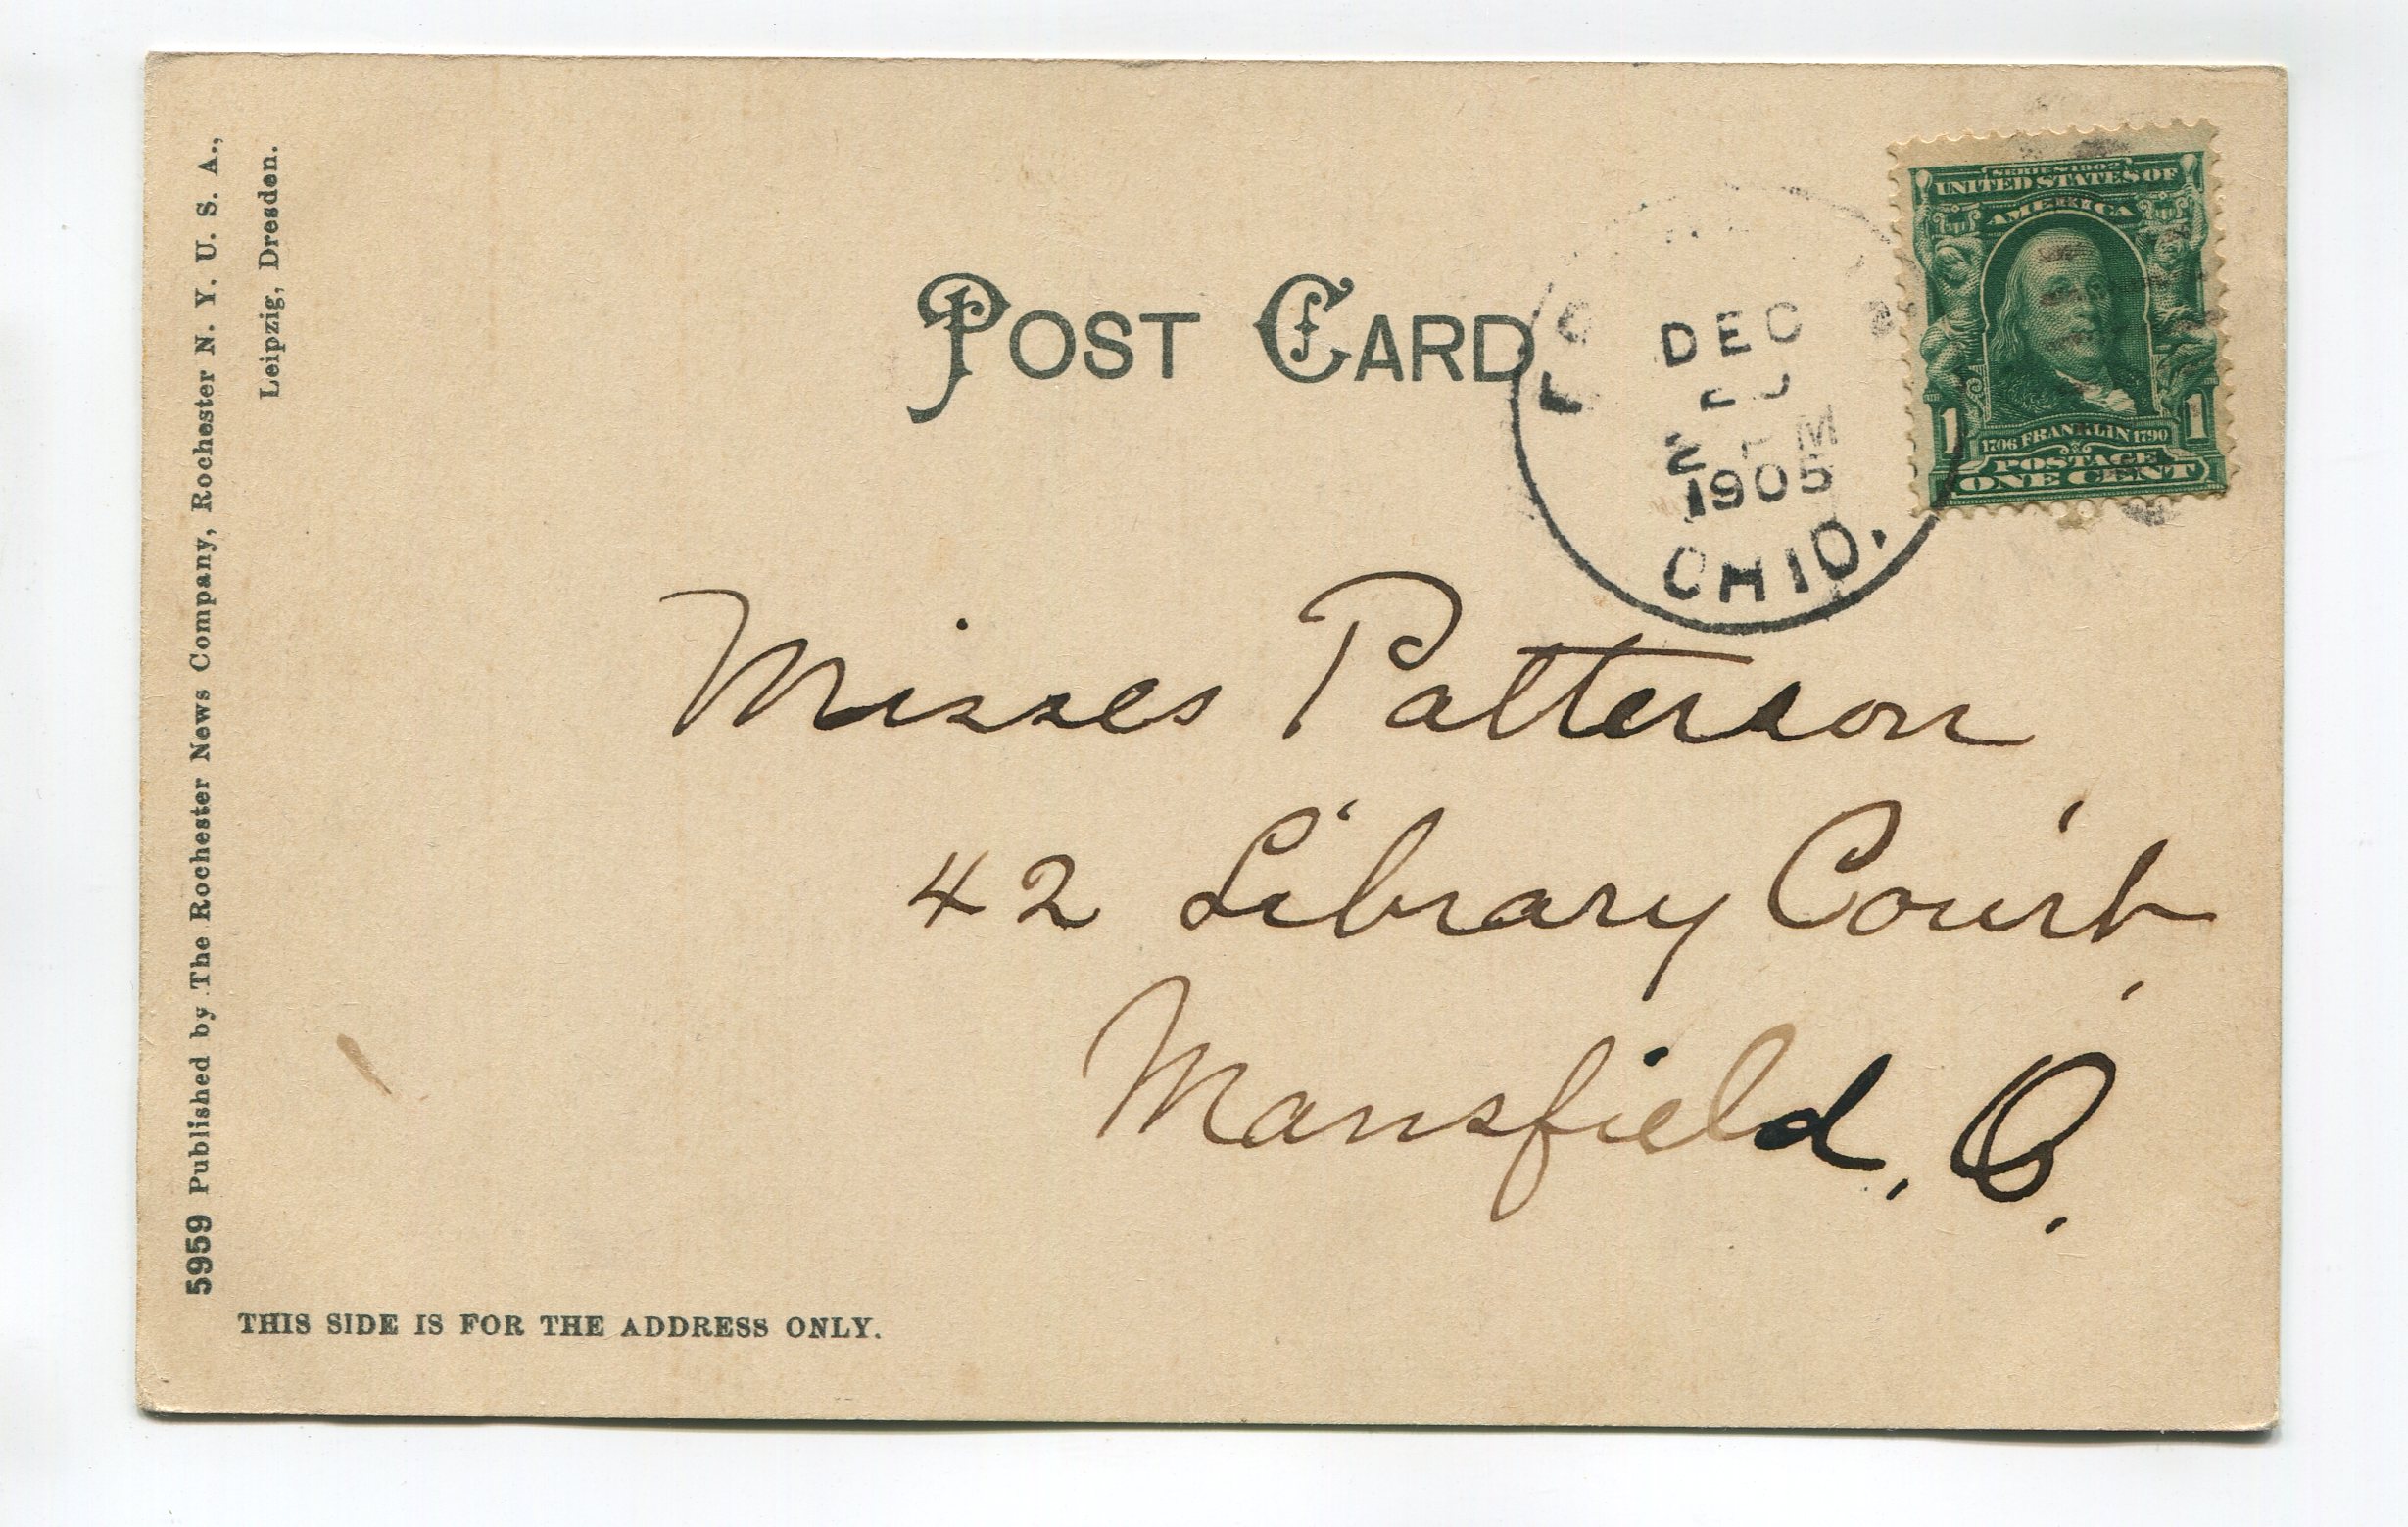 5959 Published by The Rochester News Company, Rochester N. Y. U. S. A.,
Leipzig, Dresden.
POST CARD
DEC
PM
1905
OHIO.
SERIES 1902
UNITED STATES OF
AMERICA
1 1
1706 FRANKLIN 1790
POSTAGE
ONE CENT
Misses Patterson
42 Library Court,
Mansfield, O.
THIS SIDE IS FOR THE ADDRESS ONLY.